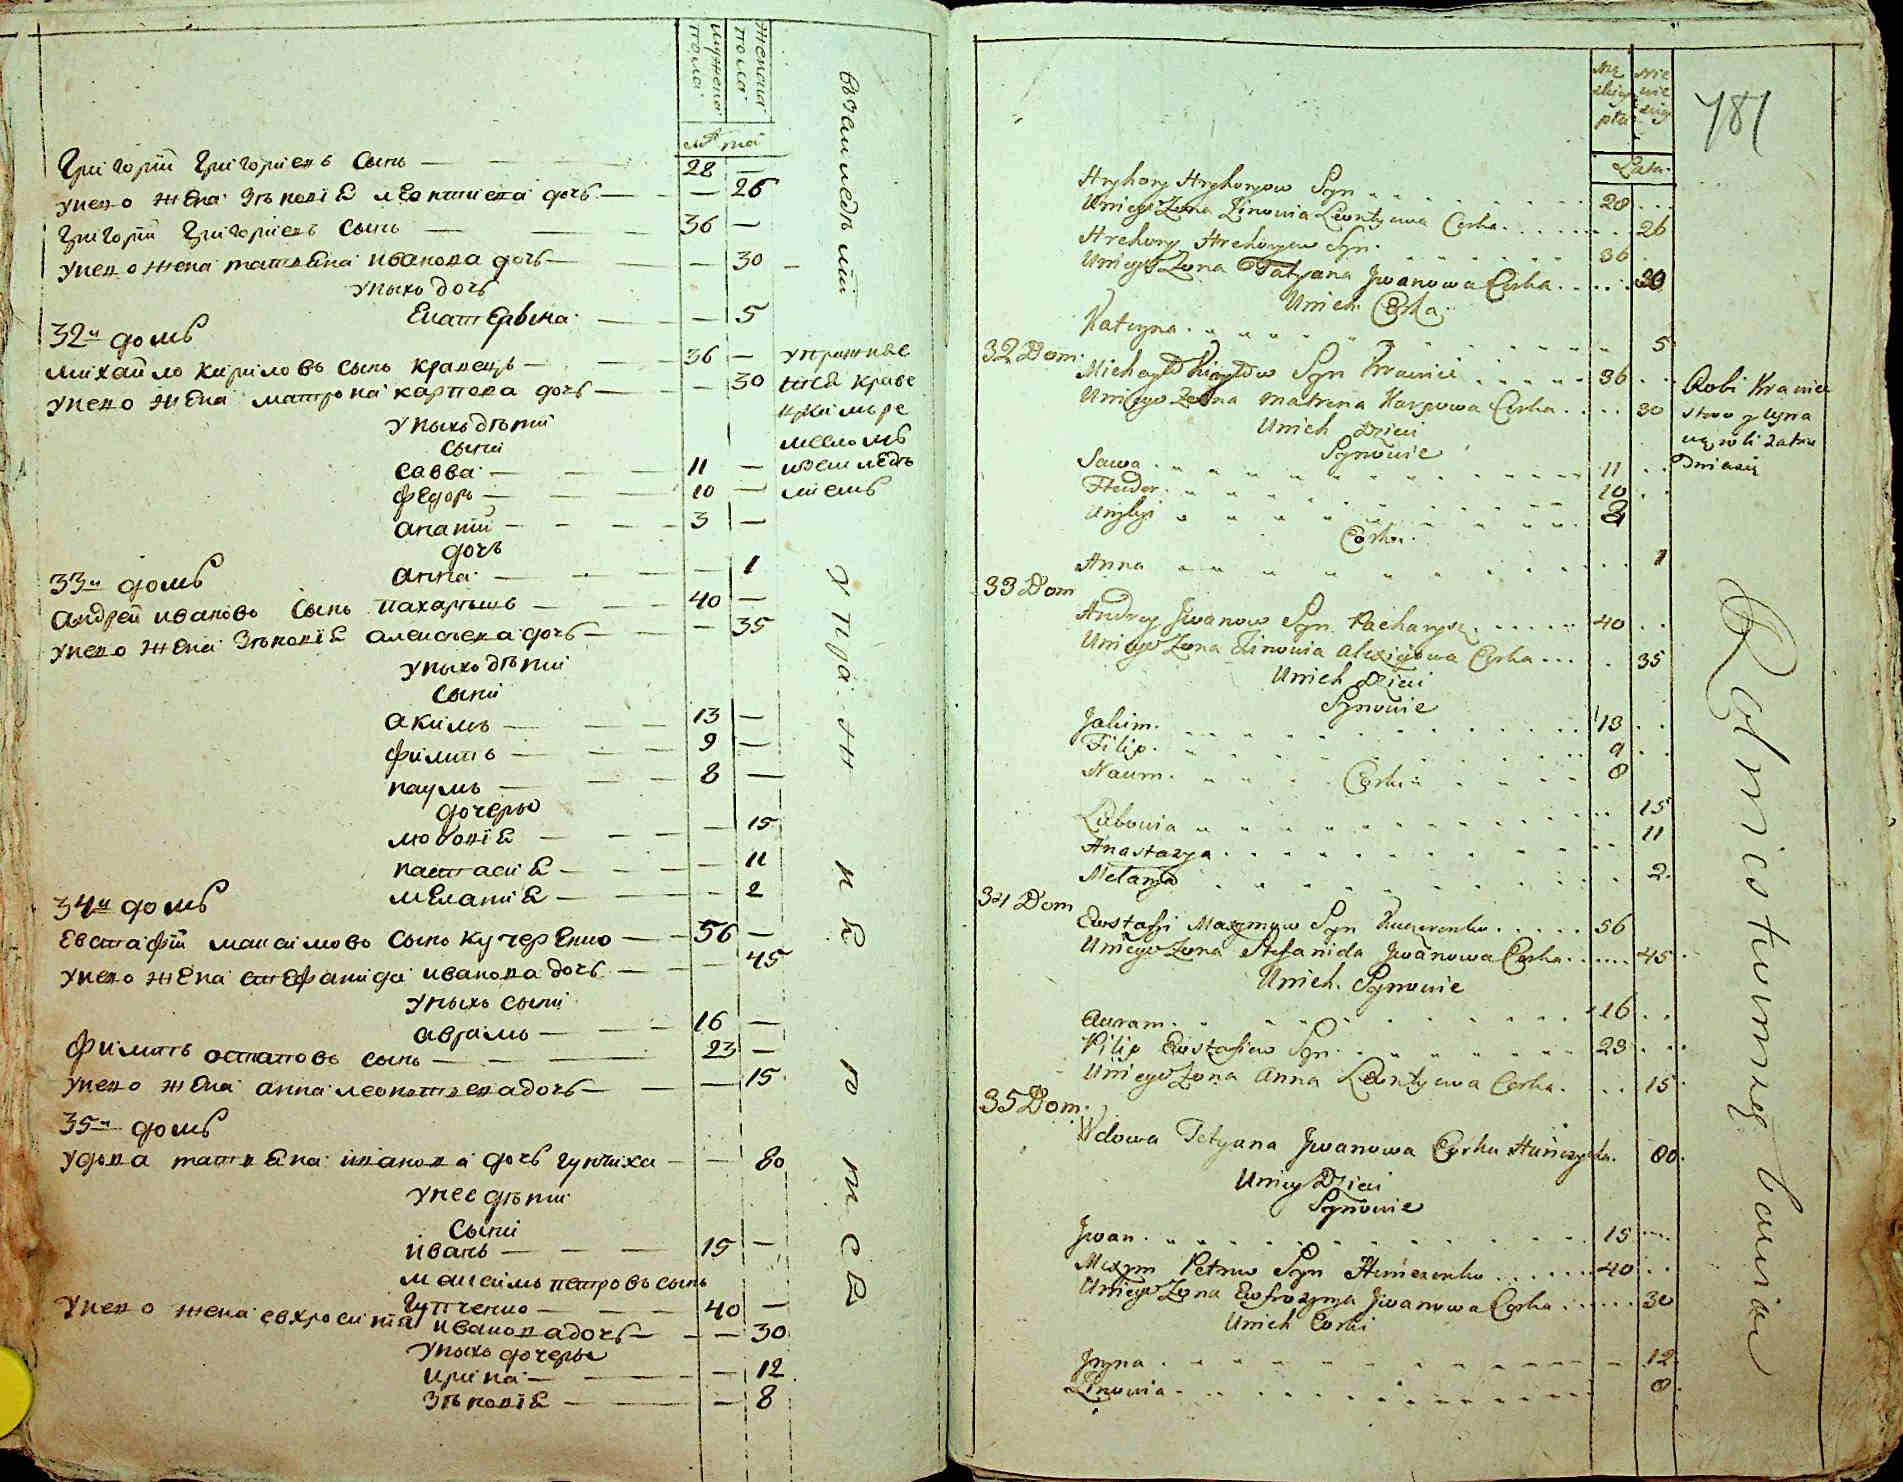 мужеска пола
женска пола
лѣта
Григорій Григоріевъ сынъ 28 —
у него жена Зѣновія Леонтиева дочь — 26
Григорій Григоріевъ сынъ 36 —
у него жена татяна иванова дочь — 30
у ныхъ дочь
Екатерына — 5
32й домъ
михайло кириловъ сынъ кравецъ 36 —
у него жена матрона карпова дочь — 30
у ныхъ дѣти
сыни
савва 11 —
федоръ 10 —
3 —
дочь
анна — 1
33й домъ
андрей ивановъ сынъ пахарышъ 40 —
у него жена Зѣновія алексѣева дочь — 35
у ныхъ дѣти
сыни
акимъ 13 —
филипъ 9 —
наумъ 8 —
дочеры
любовія — 15
настасия — 11
меланія — 2
34й домъ
евстафій максимовъ сынъ кучеренко 56 —
у него жена стефанида иванова дочь — 45
у ныхъ сыни
аврамъ 16 —
филипъ остаповъ сынъ 23 —
у него жена анна леонтиева дочь — 15
35й домъ
удова татяна иванова дочь гунчиха — 80
у нее дѣти
сыни
иванъ 15 —
максимъ петровъ сынъ
гунченко 40 —
у него жена евхросинія иванова дочь — 30
у ныхъ дочеры
ирина — 12
Зѣновія — 8
упражняе
кравецким ре
месломъ
и земледѣ
лиемъ
въ земледѣлии упражняются
781
Męzkiey płci
Lata
Hryhory Hryhoryow Syn 28
U niego Zona Zinowia Leontyiewa Corka 26
Hrehory Hrehoryew Syn 36
U niego Zona Tatyana Jwanowa Corka 30
U nich Corka
Katrzyna 5
32 Dom
Michayło Kiryłow Syn Krawiec 36
U niego Zona Matrona Karpowa Corka 30
U nich Dzieci
Synowie
Sawa 11
Fteodor 10
3
Corka
Anna 1
33 Dom
Andrzey Jwanow Syn Pacharysz 40
U niego Zona Zinowia Alexiejowa Corka 35
U nich Dzieci
Synowie
Jakim 13
Filip 9
Naum 8
Corki
Lubowia 15
Anastazya 11
Melanya 2
34 Dom
Ewstafi Maxymow Syn Kuczerenko 56
U niego Zona Stefanida Jwanowa Corka 45
U nich Synowie
Awram 16
Filip Ewstafiew Syn 23
U niego Zona Anna Leontyewa Corka 15
35 Dom
Wdowa Tetyana Jwanowa Corka Hunczycha 80
U niey Dzieci
Synowie
Jwan 15
Maxym Petrow Syn Hunczenko 40
U niego Zona Ewfrozyna Jwanowa Corka 30
U nich Corki
Jryna 12
Zinowia 8
Robi Krawiec
stwo
na roli zatru
dnia się
Rolnictwem się bawią